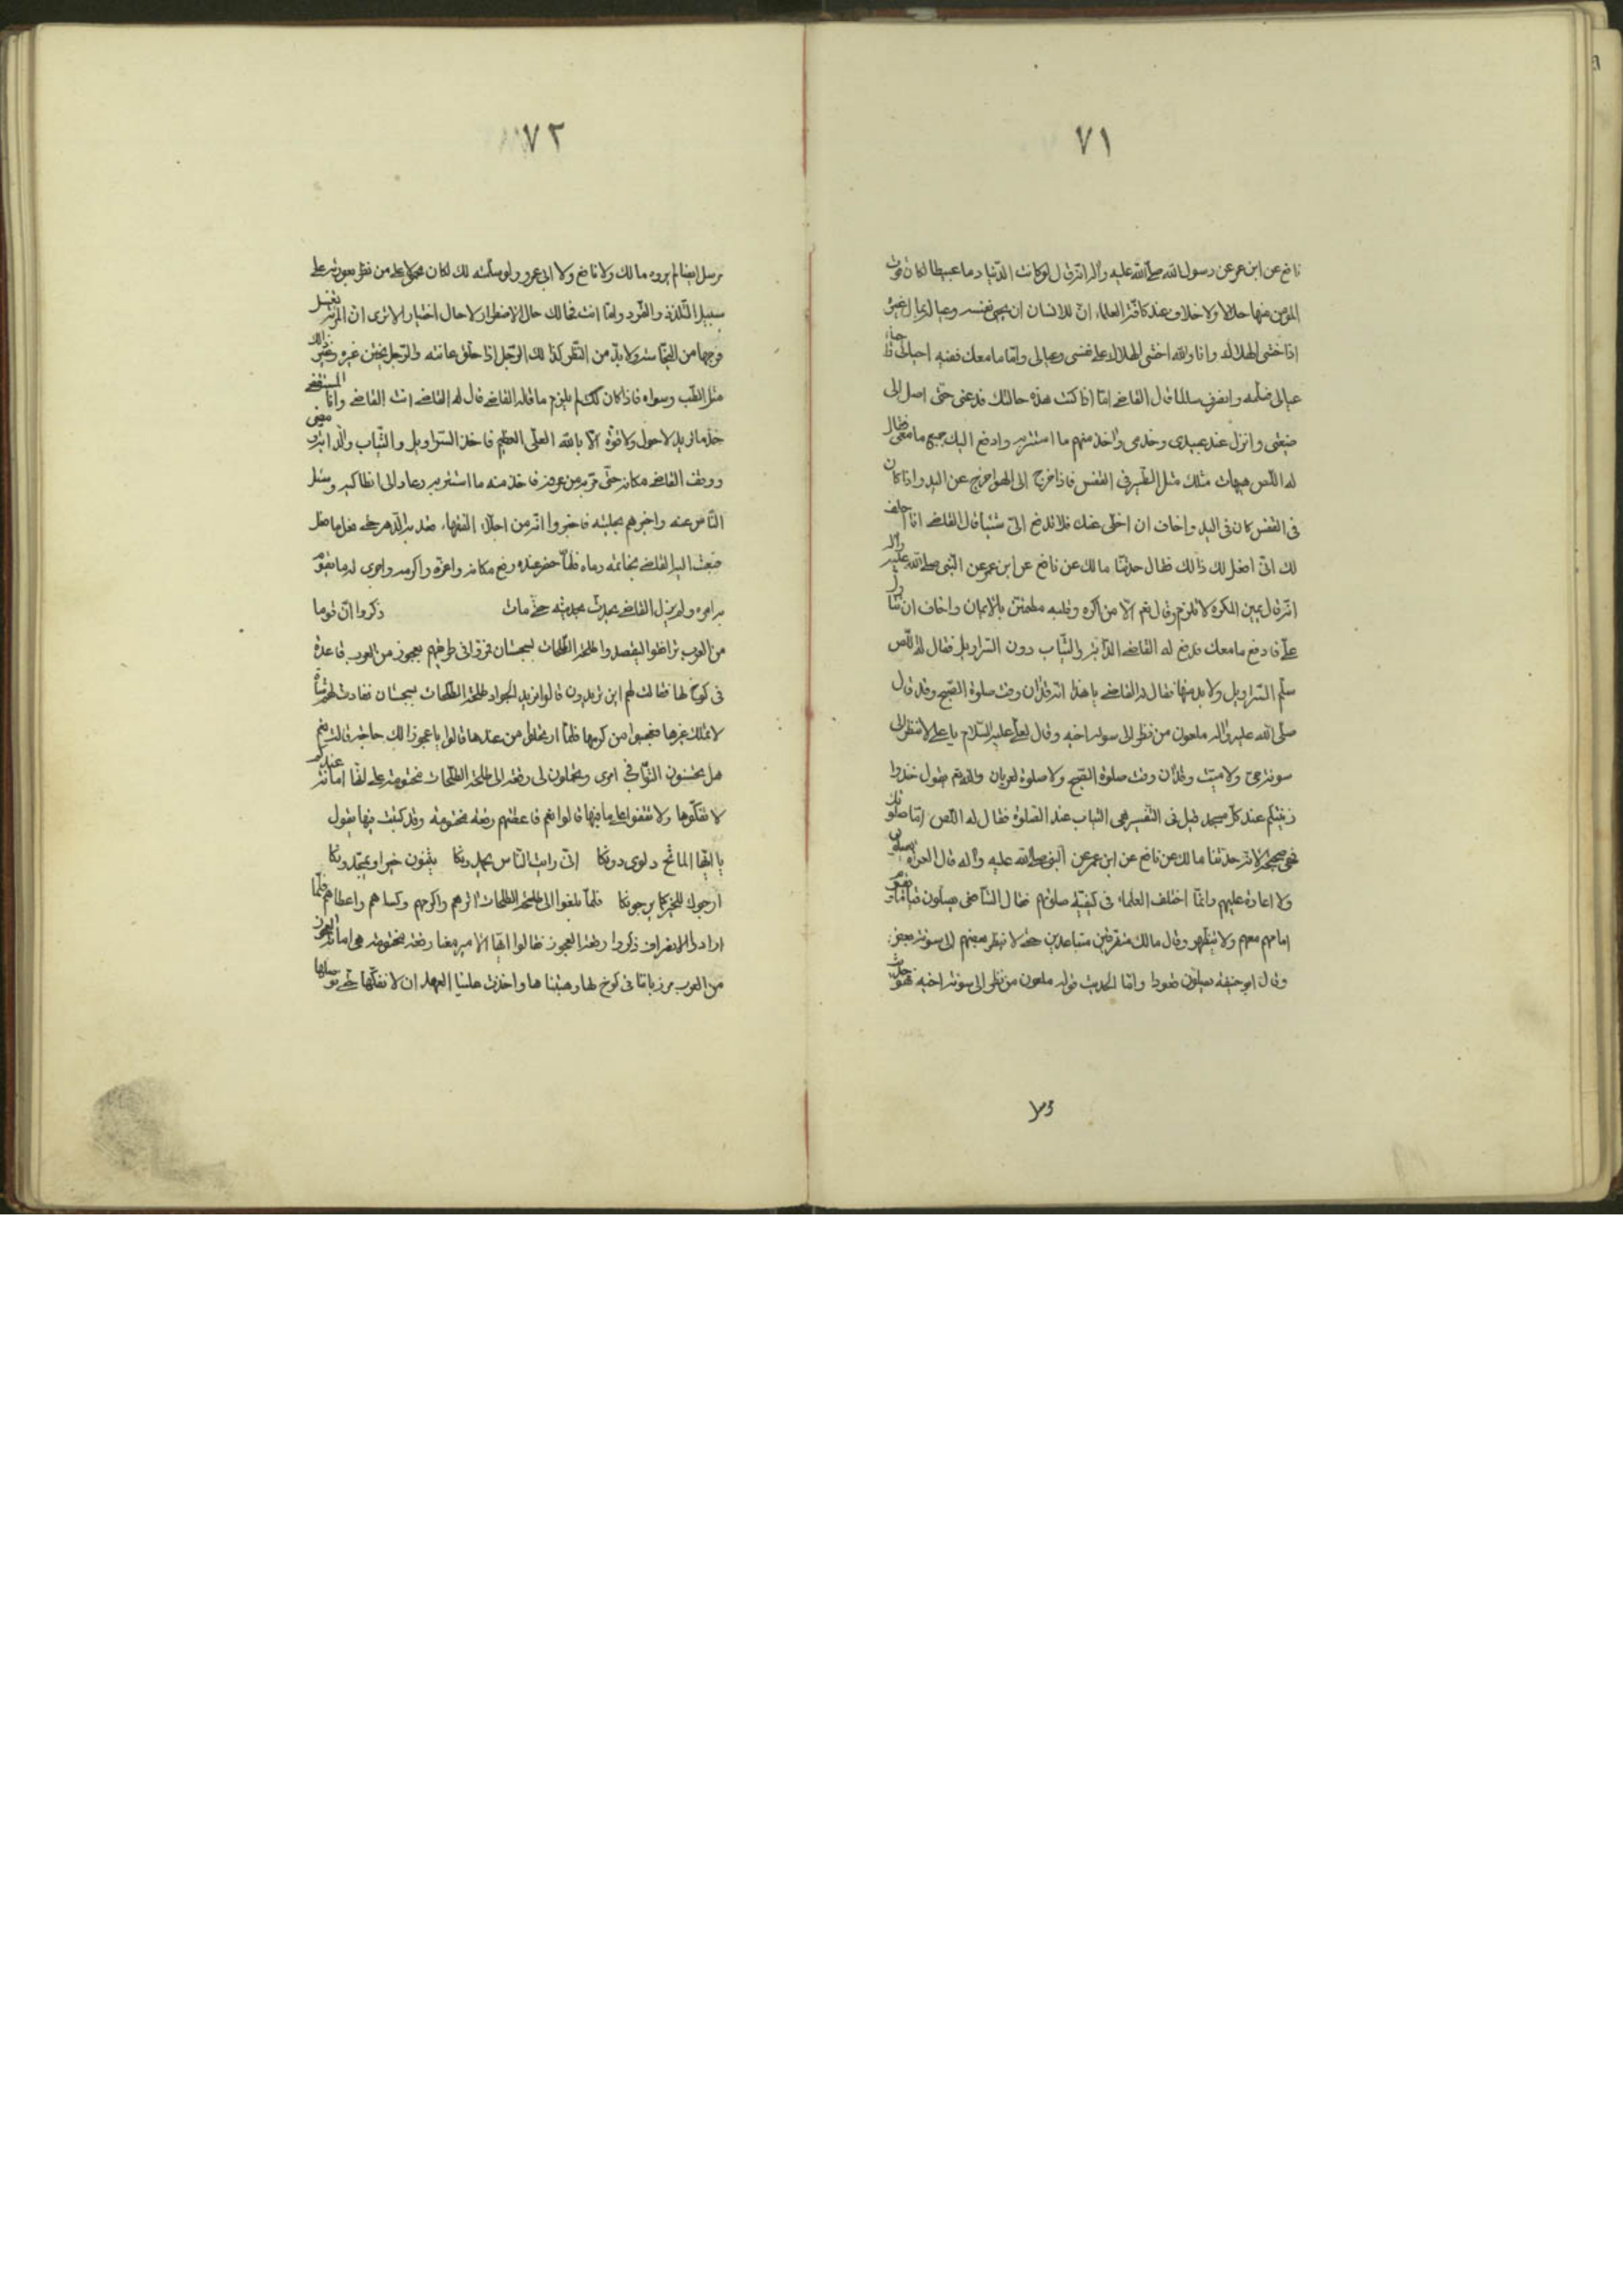 ٧١
نافع عن ابن عمر عن رسول الله صلى الله عليه واله انه قال لو كانت الدنيا دما عبيطا لكان قوت
المؤمن منها حلالا ولا خلاف عند كافة العلماء ان للانسان ان يحيى نفسه وعياله بمال غيره
اذا خشى الهلاك وانا والله اخشى الهلاك على نفسى وعيالى وانما مامعك ففيه احيائى
عيالى فسلمه وانصرف سالما قال القاضى اما اذا كنت هذه حالتك فدعنى حتى اصل الى
ضيعتى وانزل عند عبيدى وخدمى واخذ منهم ما استتر به وادفع اليك جميع مامعى فقال
له اللص هيهات مثلك مثل الطير فى القفس فاذا خرج الى الهوا خرج عن اليد واذا كان
فى القفس كان فى اليد واخاف ان اخلى عنك فلا تدفع الىّ شيئا قال القاضى انا احلف
لك انى افعل لك ذالك فقال حدثنا مالك عن نافع عن ابن عمر عن النبى صلى الله عليه واله
انه قال يمين المكره لا تلزم وقال نعم الا من اكره وقلبه مطمئن بالايمان واخاف ان
علىّ فادفع مامعك فدفع له القاضى الدابة والثياب دون السراويل فقال له اللص
سلم السراويل ولا بد منها فقال له القاضى يا هذا انه قد ان وقت صلوة الصبح وقد قال
صلى الله عليه واله ملعون من نظر الى سوئة اخيه وقال لعلى عليه السلام يا على لا تنظر الى
سوئة حى ولا ميت وقد ان وقت صلوة الصبح ولا صلوة لعريان والله تعم يقول خذوا
زينتكم عند كل مسجد قيل فى التفسير هى الثياب عند الصلوة فقال له اللص اما صلوتك
فهى صحيحة لانه حدثنا مالك عن نافع عن ابن عمر عن النبى صلى الله عليه واله قال العراة يصلون
ولا اعادة عليهم وانما اختلف العلماء فى كيفية صلوتهم فقال الشافعى يصلون قياما
امامهم معهم ولا يتظهر وقال مالك متفرقين متباعدين حتى لا ينظر بعضهم الى سوئة بعض
وقال ابو حنيفة يصلون قعودا واما الحديث قوله ملعون من نظر الى سوئة اخيه فهو حديث
٧٢
مرسل ايضا لم يروه مالك ولا نافع ولا ابن عمر ولو سلمته لك لكان محمولا على من نظر بعورته على
سبيل التلذذ والتمرد واما انت فحالك حال الاضطرار لا حال اختيار الا ترى ان المرئة تغسل
فرجها من النجاسة ولا بد من النظر كذا لك الرجل اذا حلق عانته والرجل يختن غيره
مثل الطب وسواه فاذا كان كك لم يلزم ماقاله القاضى قال له القاضى انت القاضى وانا المستقضى
خذ ما تريد لا حول ولا قوة الا بالله العلى العظيم فاخذ السراويل والثياب والدابة ومضى
ووقف القاضى مكانه حتى مر به من عرفه فاخذ منه ما استتر به وعاد الى انطاكيه وسئل
الناس عنه واخبرهم بحليته فاخبروا انه من اجلاء الفقهاء قد به الدهر حتى فعل ما فعل
فبعث اليه القاضى بخاتمه ودعاه فلما حضر عنده رفع مكانه واعزه واكرمه واجرى له مايقوم
بامره ولم يزل القاضى يحدث بحديثه حتى مات ذكروا ان قوما
من العرب ترافقوا ليقصدوا طلحة الطلحات بسجستان فمروا فى طريقهم بعجوز من العرب قاعدة
فى كوخ لها فقالت لهم اين تريدون قالوا نريد الجواد طلحة الطلحات بسجستان فقادت لهم شاة
لا تملك غيرها فعجبوا من كرمها فلما ارتحلوا من عندها قالوا يا عجوز الك حاجة قالت نعم
هل تحسنون التوافى امرى وتحملون لى رقعة الى طلحة الطلحات مختومة على انها امانة عندكم
لا تفكوها ولا تقفوا على مافيها قالوا نعم فاعطتهم رقعة مختومة وقد كتبت فيها يقول
يا ايها الماتح دلوى دونكا انى رايت الناس يحمدونكا يثنون خيرا ويمجدونكا
ارجوك للخير كما يرجونكا فلما بلغوا الى طلحة الطلحات انزلهم واكرمهم وكساهم واعطاهم فلما
ارادوا الانصراف ذكروا رقعة العجوز فقالوا ايها الامير معنا رقعة مختومة هى امانة لعجوز
من العرب مررنا بانا فى كوخ لها وهبتنا ها واخذت علينا العهد ان لا نفكها حتى نوصلها